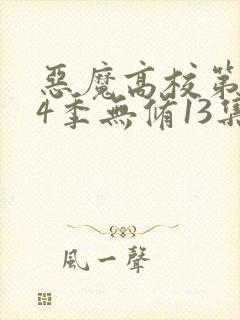 惡魔高校第
4季無脩13集
風一聲